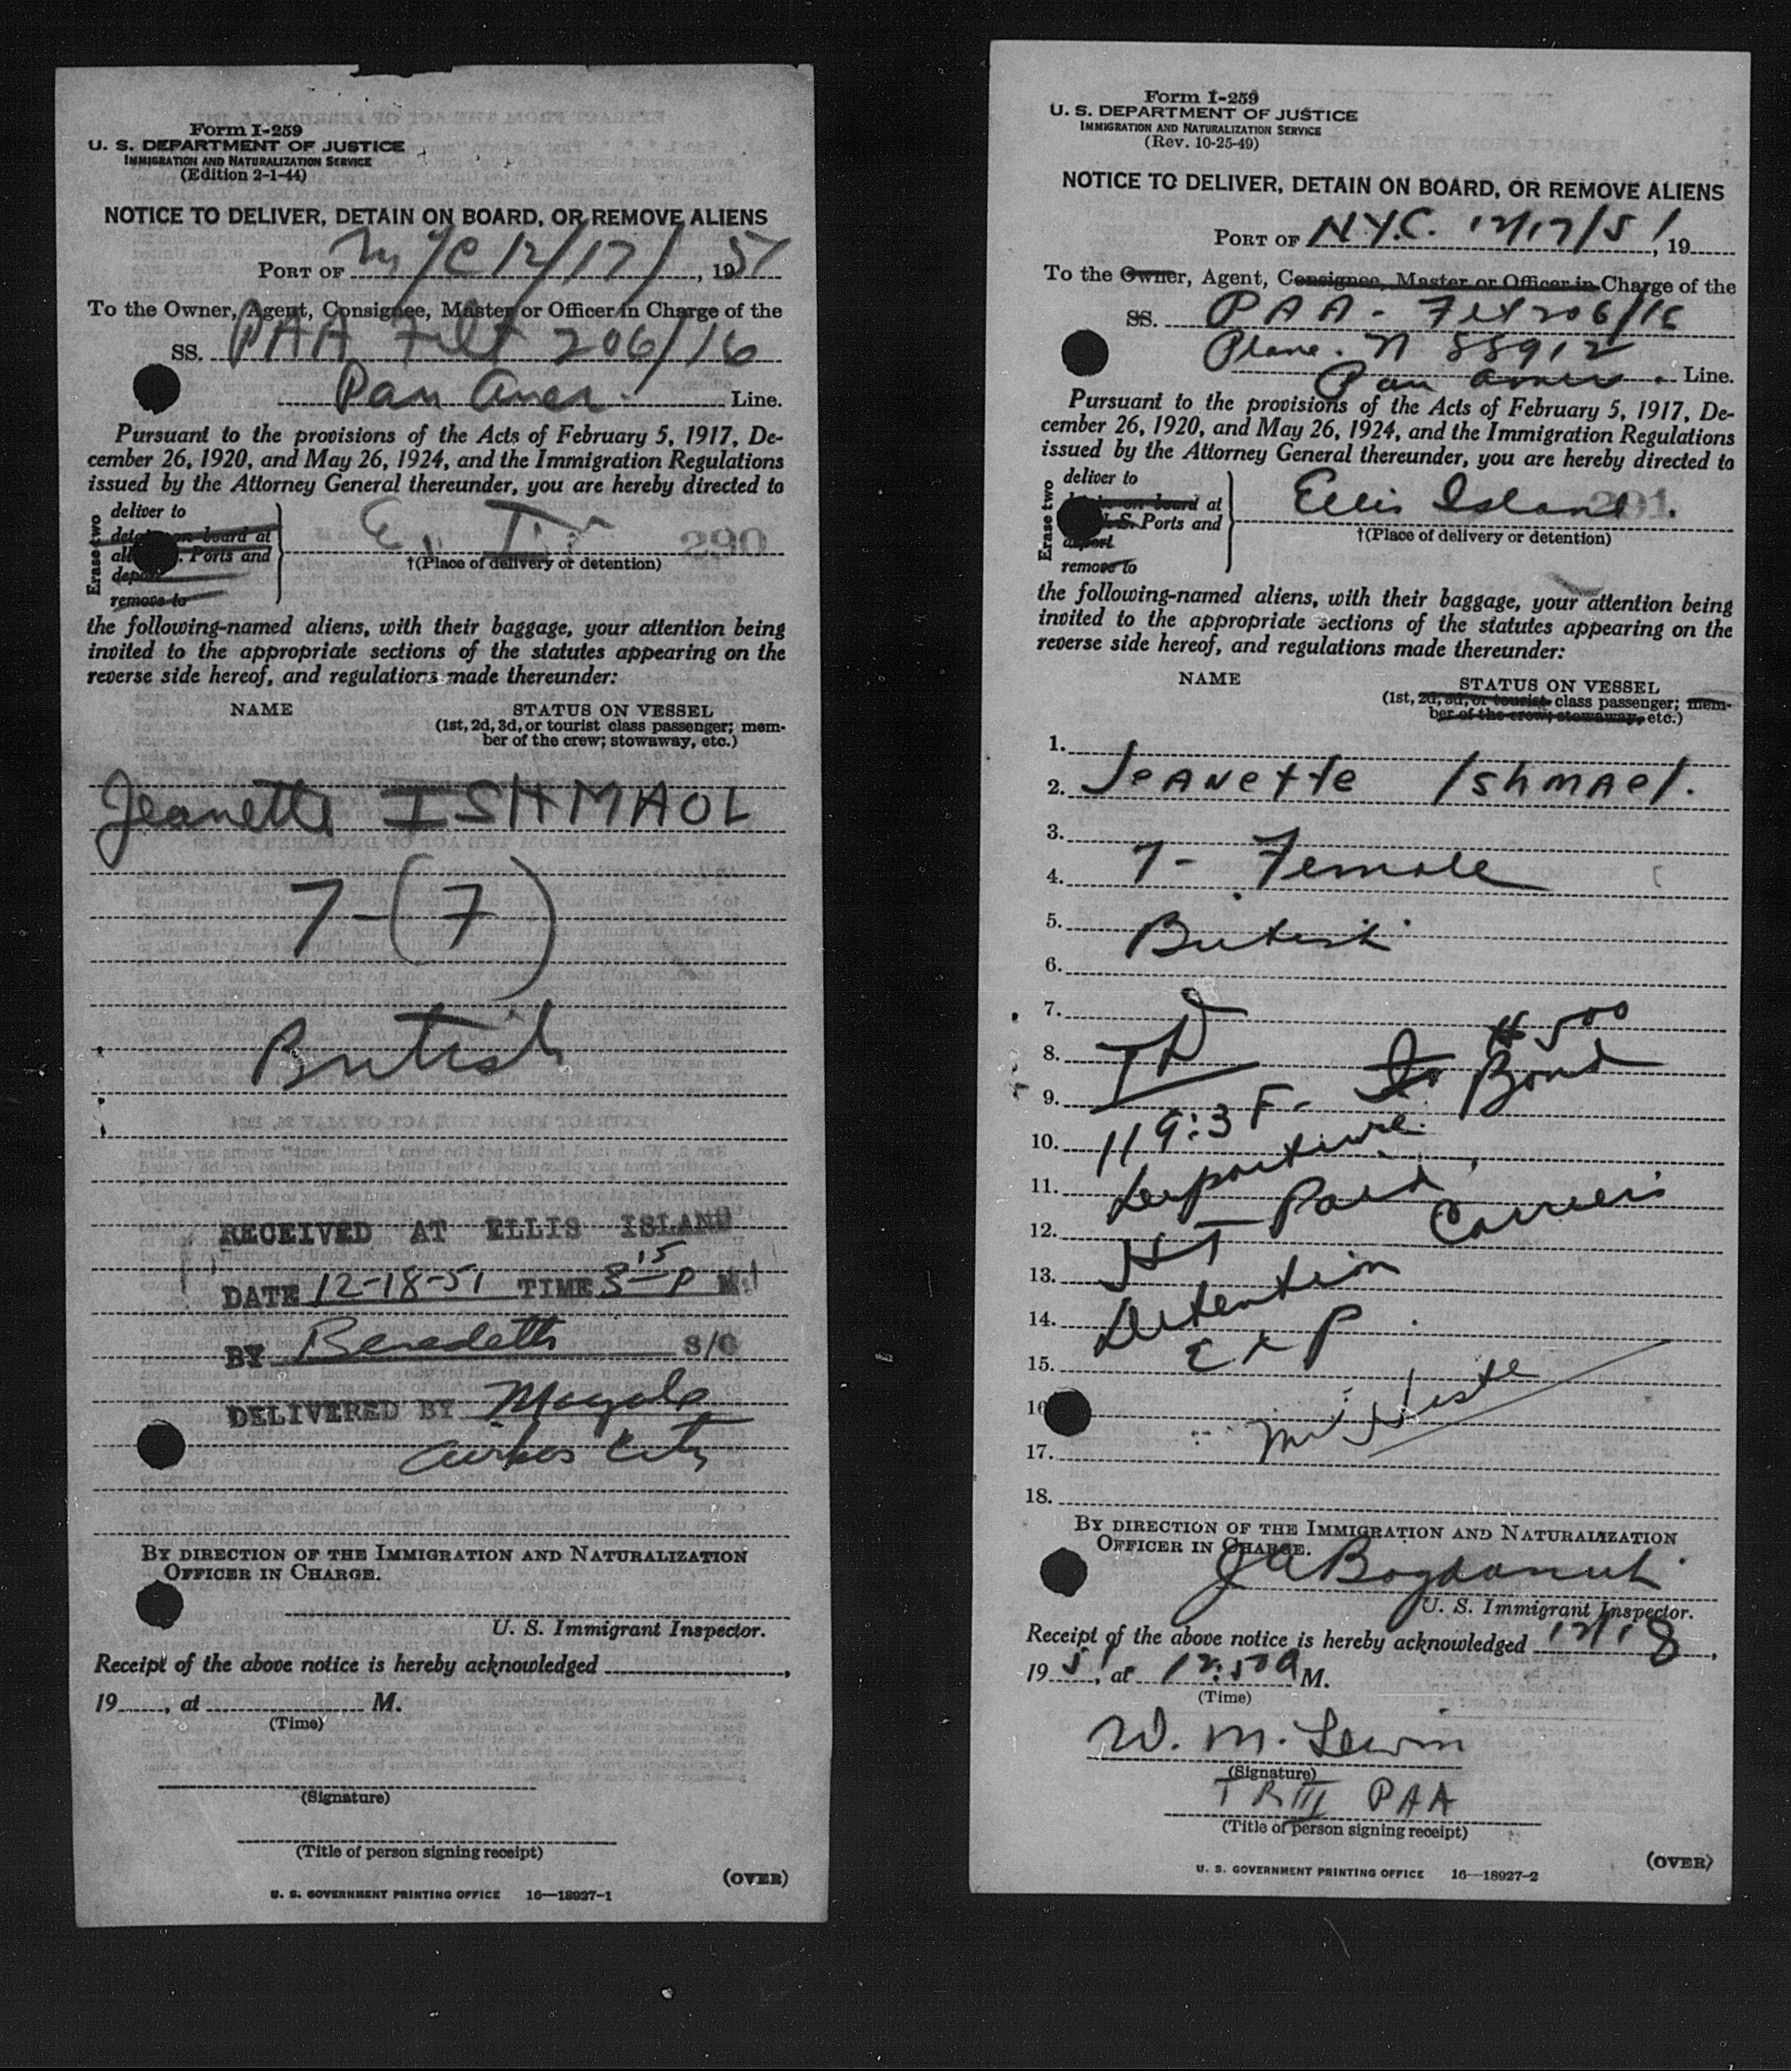 Form I-259
U. S. DEPARTMENT OF JUSTICE
IMMIGRATION AND NATURALIZATION SERVICE
(Edition 2-1-44)
NOTICE TO DELIVER, DETAIN ON BOARD, OR REMOVE ALIENS
PORT OF NYC 12/17/, 1951
To the Owner, Agent, Consignee, Master or Officer in Charge of the
SS. PAA Flt 206/16
Pan Amer. Line.
Pursuant to the provisions of the Acts of February 5, 1917, De-
cember 26, 1920, and May 26, 1924, and the Immigration Regulations
issued by the Attorney General thereunder, you are hereby directed to
Erase two
deliver to
detain on board at
all Ports and
deport
remove to
E. I. 290
†(Place of delivery or detention)
the following-named aliens, with their baggage, your attention being
invited to the appropriate sections of the statutes appearing on the
reverse side hereof, and regulations made thereunder:
NAME STATUS ON VESSEL
(1st, 2d, 3d, or tourist class passenger; mem-
ber of the crew; stowaway, etc.)
Jeanette ISHMAOL
7-(7)
British
RECEIVED AT ELLIS ISLAND
DATE 12-18-51 TIME 8 15 P M.
BY Benedetti S/G
DELIVERED BY
City
BY DIRECTION OF THE IMMIGRATION AND NATURALIZATION
OFFICER IN CHARGE.
U. S. Immigrant Inspector.
Receipt of the above notice is hereby acknowledged ,
19 , at M.
(Time)
(Signature)
(Title of person signing receipt)
(OVER)
U. S. GOVERNMENT PRINTING OFFICE 16—18927-1
Form I-259
U. S. DEPARTMENT OF JUSTICE
IMMIGRATION AND NATURALIZATION SERVICE
(Rev. 10-25-49)
NOTICE TO DELIVER, DETAIN ON BOARD, OR REMOVE ALIENS
PORT OF N.Y.C. 12/17/51, 19
To the Owner, Agent, Consignee, Master or Officer in Charge of the
SS. PAA - Flt 206/16
Plane. N 88912
Pan Amer. Line.
Pursuant to the provisions of the Acts of February 5, 1917, De-
cember 26, 1920, and May 26, 1924, and the Immigration Regulations
issued by the Attorney General thereunder, you are hereby directed to
Erase two
deliver to
on board at
U.S. Ports and
deport
remove to
Ellis Island. 291
†(Place of delivery or detention)
the following-named aliens, with their baggage, your attention being
invited to the appropriate sections of the statutes appearing on the
reverse side hereof, and regulations made thereunder:
NAME STATUS ON VESSEL
(1st, 2d, 3d, or tourist class passenger; mem-
ber of the crew; stowaway, etc.)
1.
2. Jeanette Ishmael.
3.
4. 7 - Female
5. British
6.
7. $500
8. TD Bond
9.
10. 119:3 F-
11. departure.
12. HT Paid,
13. Detention Carriers
14. Exp.
15.
16
17.
18.
BY DIRECTION OF THE IMMIGRATION AND NATURALIZATION
OFFICER IN CHARGE.
U. S. Immigrant Inspector.
Receipt of the above notice is hereby acknowledged 12/18,
1951, at 12:50 A M.
(Time)
W. M. Lewin
(Signature)
TR III PAA
(Title of person signing receipt)
(OVER)
U. S. GOVERNMENT PRINTING OFFICE 16—18927-2